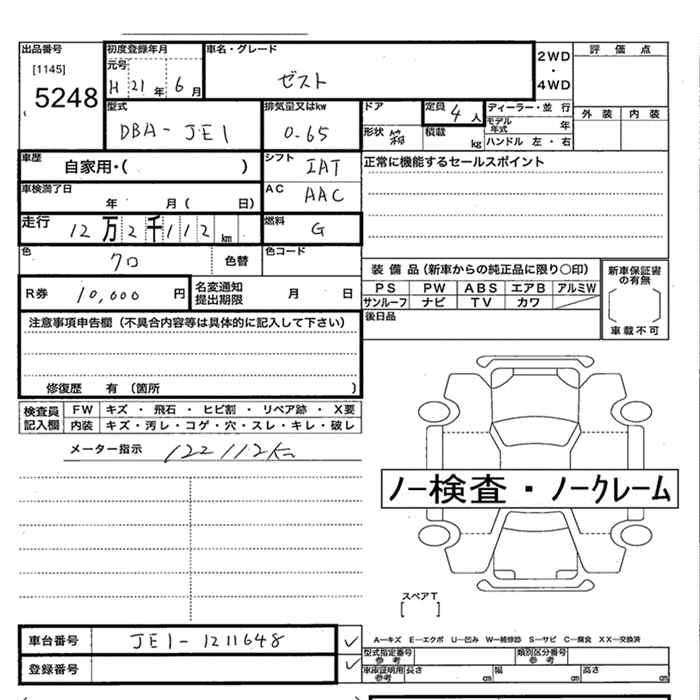 出品番号
[1145]
5248
初度登録年月
元号
H 21 年 6 月
車名・グレード
ゼスト
2WD
・
4WD
評 価 点
外 装 内 装
型式
DBA-JE1
排気量又はkw
0.65
ドア
形状
定員
4 人
積載
kg
ディーラー・並 行
モデル年式 年
ハンドル 左・右
車歴
自家用・( )
シフト
IAT
正常に機能するセールスポイント
車検満了日
年 月( 日)
AC
AAC
走行
12万2千112 km
燃料
G
色
クロ
色替
色コード
R券
10,000 円
名変通知
提出期限
月 日
装 備 品(新車からの純正品に限り○印)
PS PW ABS エアB アルミW
サンルーフ ナビ TV カワ
後日品
新車保証書
の有無
車載不可
注意事項申告欄(不具合内容等は具体的に記入して下さい)
修復歴 有 (箇所 )
検査員
記入欄
FW キズ ・ 飛石 ・ ヒビ割 ・ リペア跡 ・ X要
内装 キズ・汚レ・コゲ・穴・スレ・キレ・破レ
メーター指示 122112km
ノー検査・ノークレーム
スペアT
[ ]
車台番号
JE1-1211648
登録番号
A―キズ E―エクボ U―凹み W―補修跡 S―サビ C―腐食 XX―交換済
型式指定番号
参 考
類別区分番号
参 考
車庫証明用
参考
長さ cm 幅 cm 高さ cm